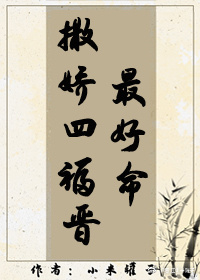 撒娇四福晋
最好命
作者：小米罐